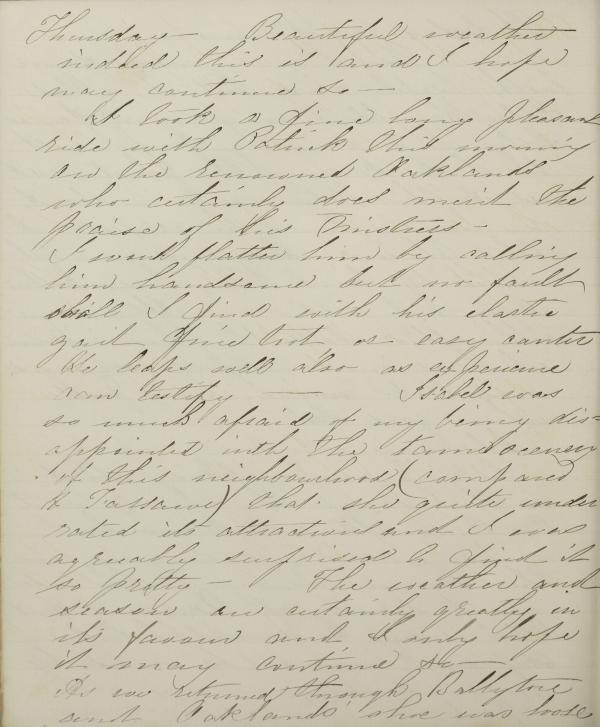 Thursday — Beautiful weather
indeed this is and I hope
may continue so —
I took a fine long pleasant
ride with Patrick this morning
on the renowned Oaklands
who certainly does merit the
praise of his mistress —
I wont flatter him by calling
him handsome but no fault
shall I find with his elastic
gait fine trot or easy canter
He leaps well also as experience
can testify — Isabel was
so much afraid of my being dis=
appointed with the tame scenery
of this neighbourhood (compared
to Tassawe) that she quite under
rated its attraction and I was
agreeably surprised to find it
so pretty — The weather and
season are certainly greatly in
its favour and I only hope
it may continue so —
As we returned through Ballytore
and Oaklands' shoe was loose